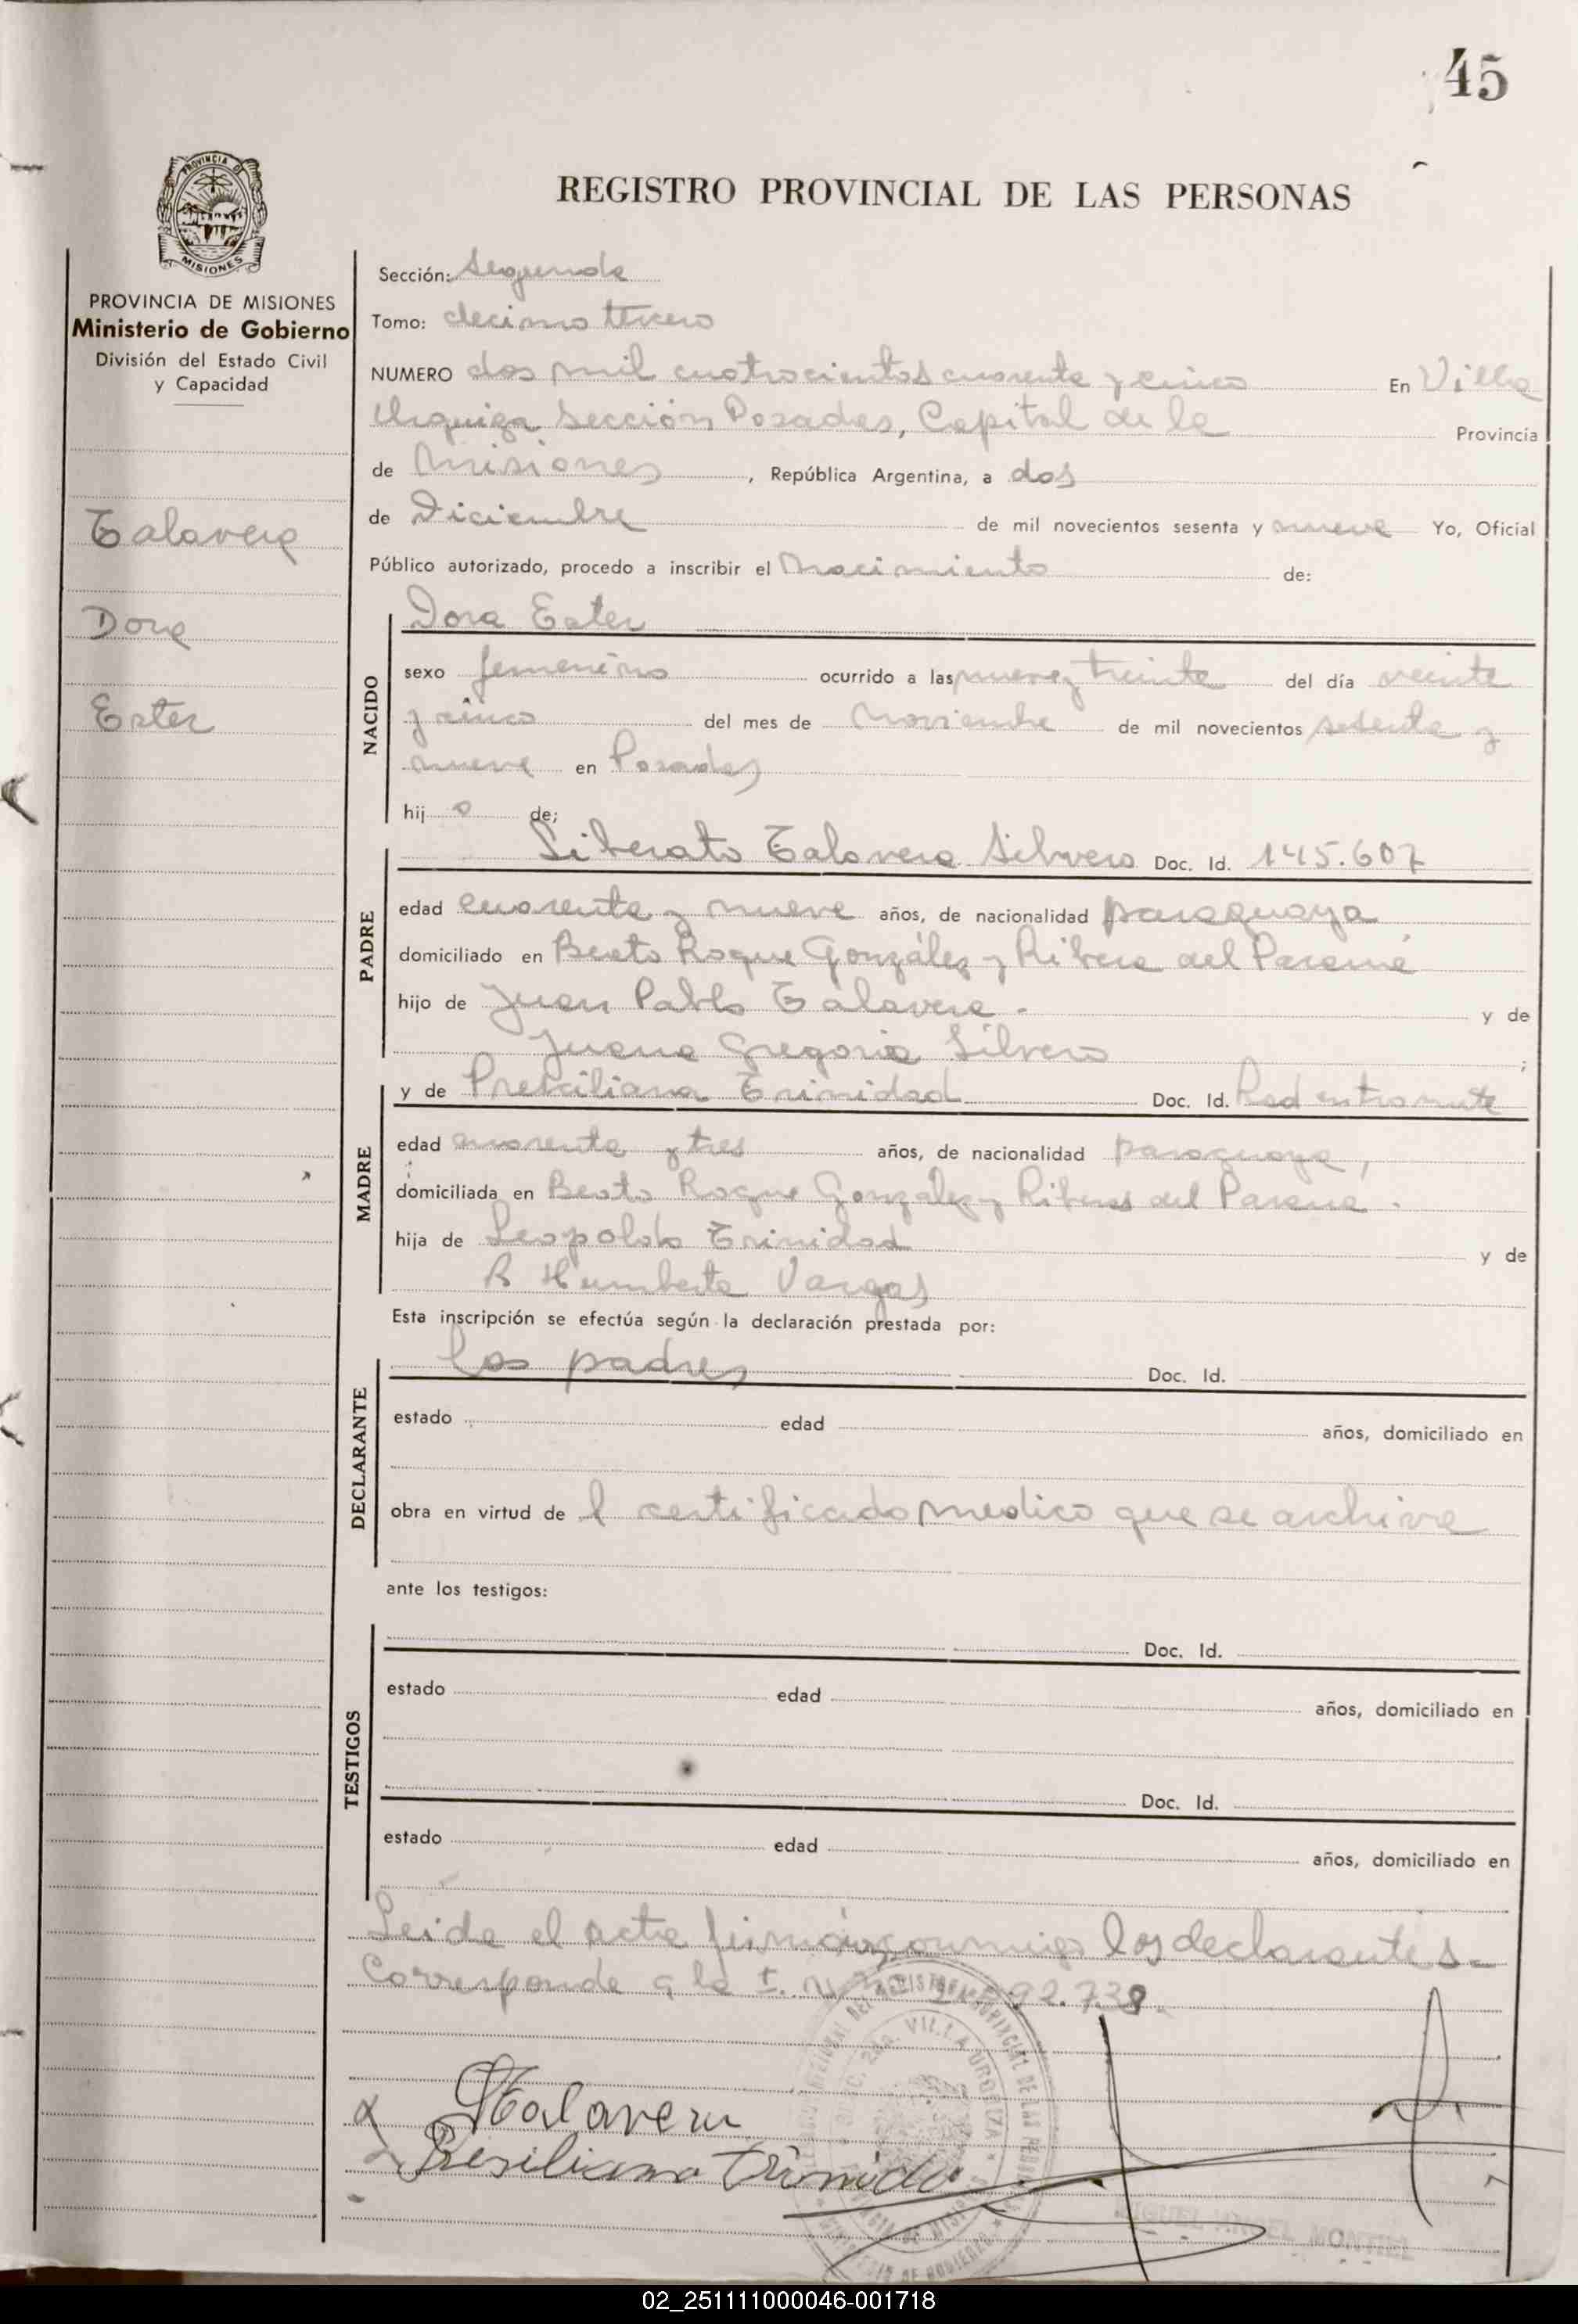 45
REGISTRO PROVINCIAL DE LAS PERSONAS
PROVINCIA DE MISIONES
Ministerio de Gobierno
División del Estado Civil
y Capacidad
Talavera
Dora
Ester
Sección: Segunda
Tomo: decimo tercero
NUMERO dos mil cuatrocientos cuarenta y cinco En Villa
Urquiza Sección Posadas, Capital de la Provincia
de Misiones, República Argentina, a dos
de Diciembre de mil novecientos sesenta y nueve Yo, Oficial
Público autorizado, procedo a inscribir el Nacimiento de:
NACIDO
Dora Ester
sexo femenino ocurrido a las nueve y treinta del día veinte
y cinco del mes de Noviembre de mil novecientos sesenta y
nueve en Posadas
hij a de;
PADRE
Liberato Talavera Silvero Doc. Id. 145.607
edad cuarenta y nueve años, de nacionalidad paraguaya
domiciliado en Beato Roque González y Ribera del Paraná
hijo de Juan Pablo Talavera - y de
Juana Gregoria Silvero ;
MADRE
y de Presciliana Trinidad Doc. Id.
edad cuarenta y tres años, de nacionalidad paraguaya,
domiciliada en Beato Roque González y Ribera del Paraná.
hija de Leopoldo Trinidad y de
R Humberta Vargas
Esta inscripción se efectúa según la declaración prestada por:
DECLARANTE
los padres Doc. Id.
estado edad años, domiciliado en
obra en virtud de l certificado medico que se archiva
ante los testigos:
TESTIGOS
Doc. Id.
estado edad años, domiciliado en
Doc. Id.
estado edad años, domiciliado en
Leida el acta firman conmigo los declarantes.-
Corresponde a la 92.738.
Talavera
Presiliana Trinida
MIGUEL ANGEL MONTIEL
02_251111000046-001718